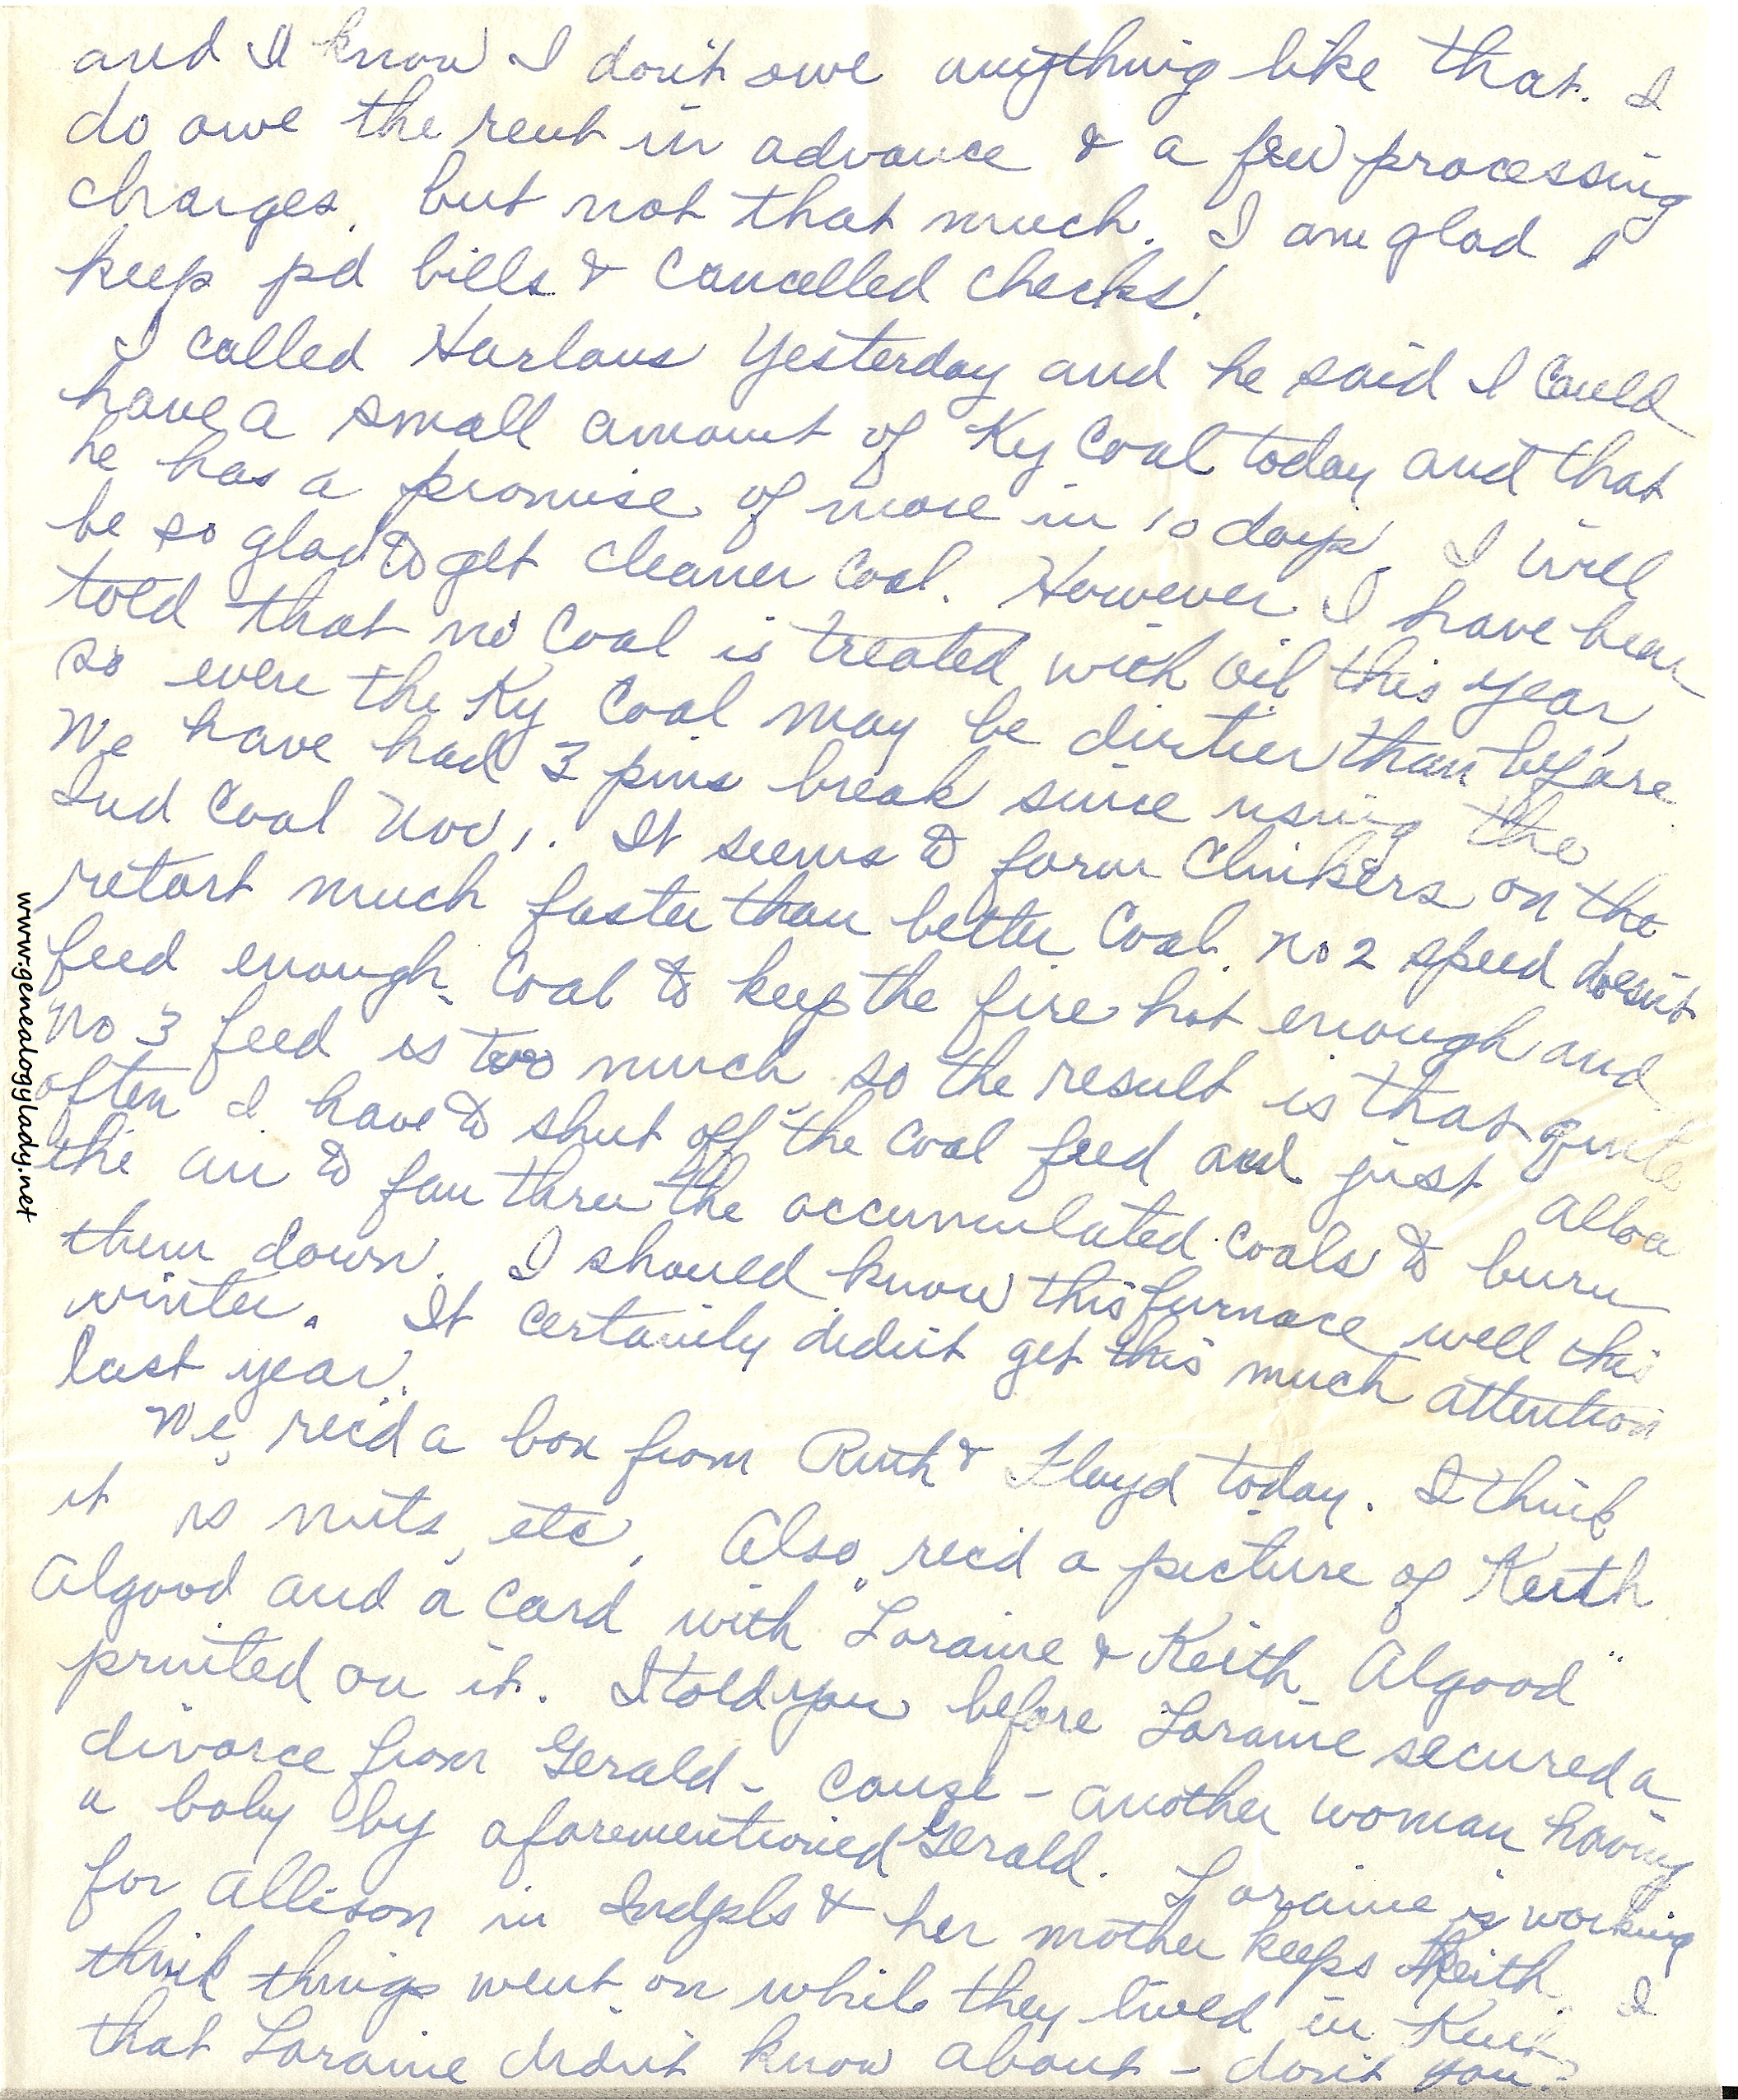 and I know I don't owe anything like that. I
do owe the rent in advance & a few processing
charges, but not that much. I am glad I
keep pd bills & cancelled checks.
I called Harlans yesterday and he said I could
have a small amount of Ky coal today and that
he has a promise of more in 10 days. I will
be so glad to get cleaner coal. However I have been
told that no coal is treated with oil this year,
so even the Ky coal may be dirtier than before.
We have had 3 pins break since using the
Ind coal Nov 1. It seems to form clinkers on the
retort much faster than better coal. No 2 speed doesn't
feed enough coal to keep the fire hot enough and
No 3 feed is too much so the result is that quite
often I have to shut off the coal feed and just allow
the air to fan thru the accumulated coals to burn
them down. I should know this furnace well this
winter. It certainly didn't get this much attention
last year.
We rec'd a box from Ruth & Floyd today. I think
it is nuts, etc. Also rec'd a picture of Keith
Algood and a card with "Loraine & Keith Algood"
printed on it. I told you before Loraine secured a
divorce from Gerald - cause - another woman having
a baby by aforementioned Gerald. Loraine is working
for Allison in Indpls & her mother keeps Keith. I
think things went on while they lived in Kent
that Loraine didn't know about - don't you?
www.genealogylady.net